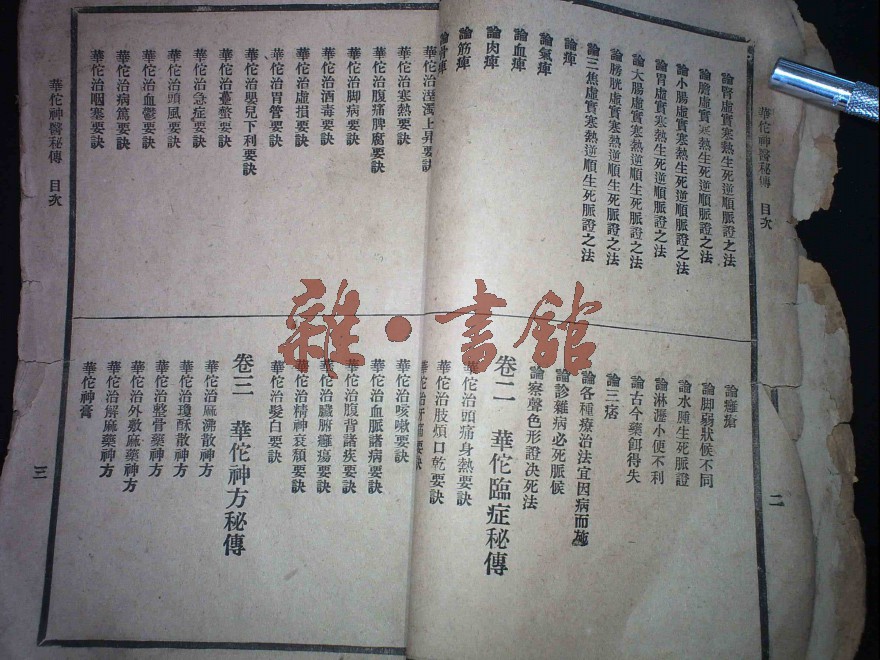 華佗神醫秘傳 目次
二
論腎虛實寒熱生死逆順脈證之法
論膽虛實寒熱生死逆順脈證之法
論小腸虛實寒熱生死逆順脈證之法
論胃虛實寒熱生死逆順脈證之法
論大腸虛實寒熱生死逆順脈證之法
論膀胱虛實寒熱生死逆順脈證之法
論三焦虛實寒熱逆順生死脈證之法
論痺
論氣痺
論血痺
論肉痺
論筋痺
論骨痺
論癰瘡
論脚弱狀候不同
論水腫生死脈證
論淋瀝小便不利
論古今藥餌得失
論三痞
論各種療治法宜因病而施
論診雜病必死脈候
論察聲色形證決死法
卷二 華佗臨症秘傳
華佗治頭痛身熱要訣
華佗治肢煩口乾要訣
華佗治溼濁上昇要訣
華佗治寒熱要訣
華佗治腹痛脾腐要訣
華佗治脚病要訣
華佗治酒毒要訣
華佗治虛損要訣
華佗治胃管要訣
華佗治嬰兒下利要訣
華佗治蠆螫要訣
華佗治急症要訣
華佗治頭風要訣
華佗治血鬱要訣
華佗治病篤要訣
華佗治咽塞要訣
華佗治咳嗽要訣
華佗治血脈諸病要訣
華佗治腹背諸疾要訣
華佗治臟腑癰瘍要訣
華佗治精神衰頹要訣
華佗治髮白要訣
卷三 華佗神方秘傳
華佗治麻沸散神方
華佗治瓊酥散神方
華佗治整骨藥神方
華佗治外敷麻藥神方
華佗治解麻藥神方
華佗神膏
華佗神醫秘傳 目次
三
雜·書館